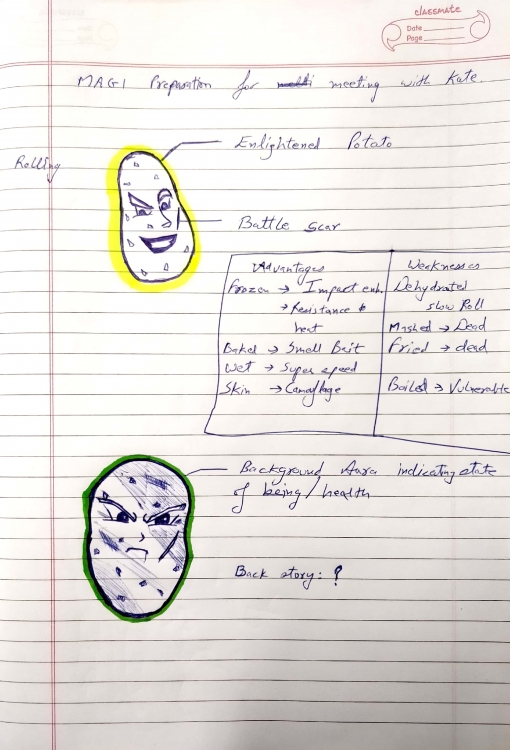 classmate
Date
Page
MAGI Preparation for meeting with Kate.
Enlightened Potato
Rolling
Battle scar
Advantages
Frozen → Impact enh.
→ Resistance to
heat
Baked → Small
Wet → Super speed
Skin → Camoflage
Weaknesses
Dehydrated
slow Roll
Mashed → Dead
Fried → dead
Boiled → Vulnerable
Background Aura indicating state
of being/health
Back story: ?